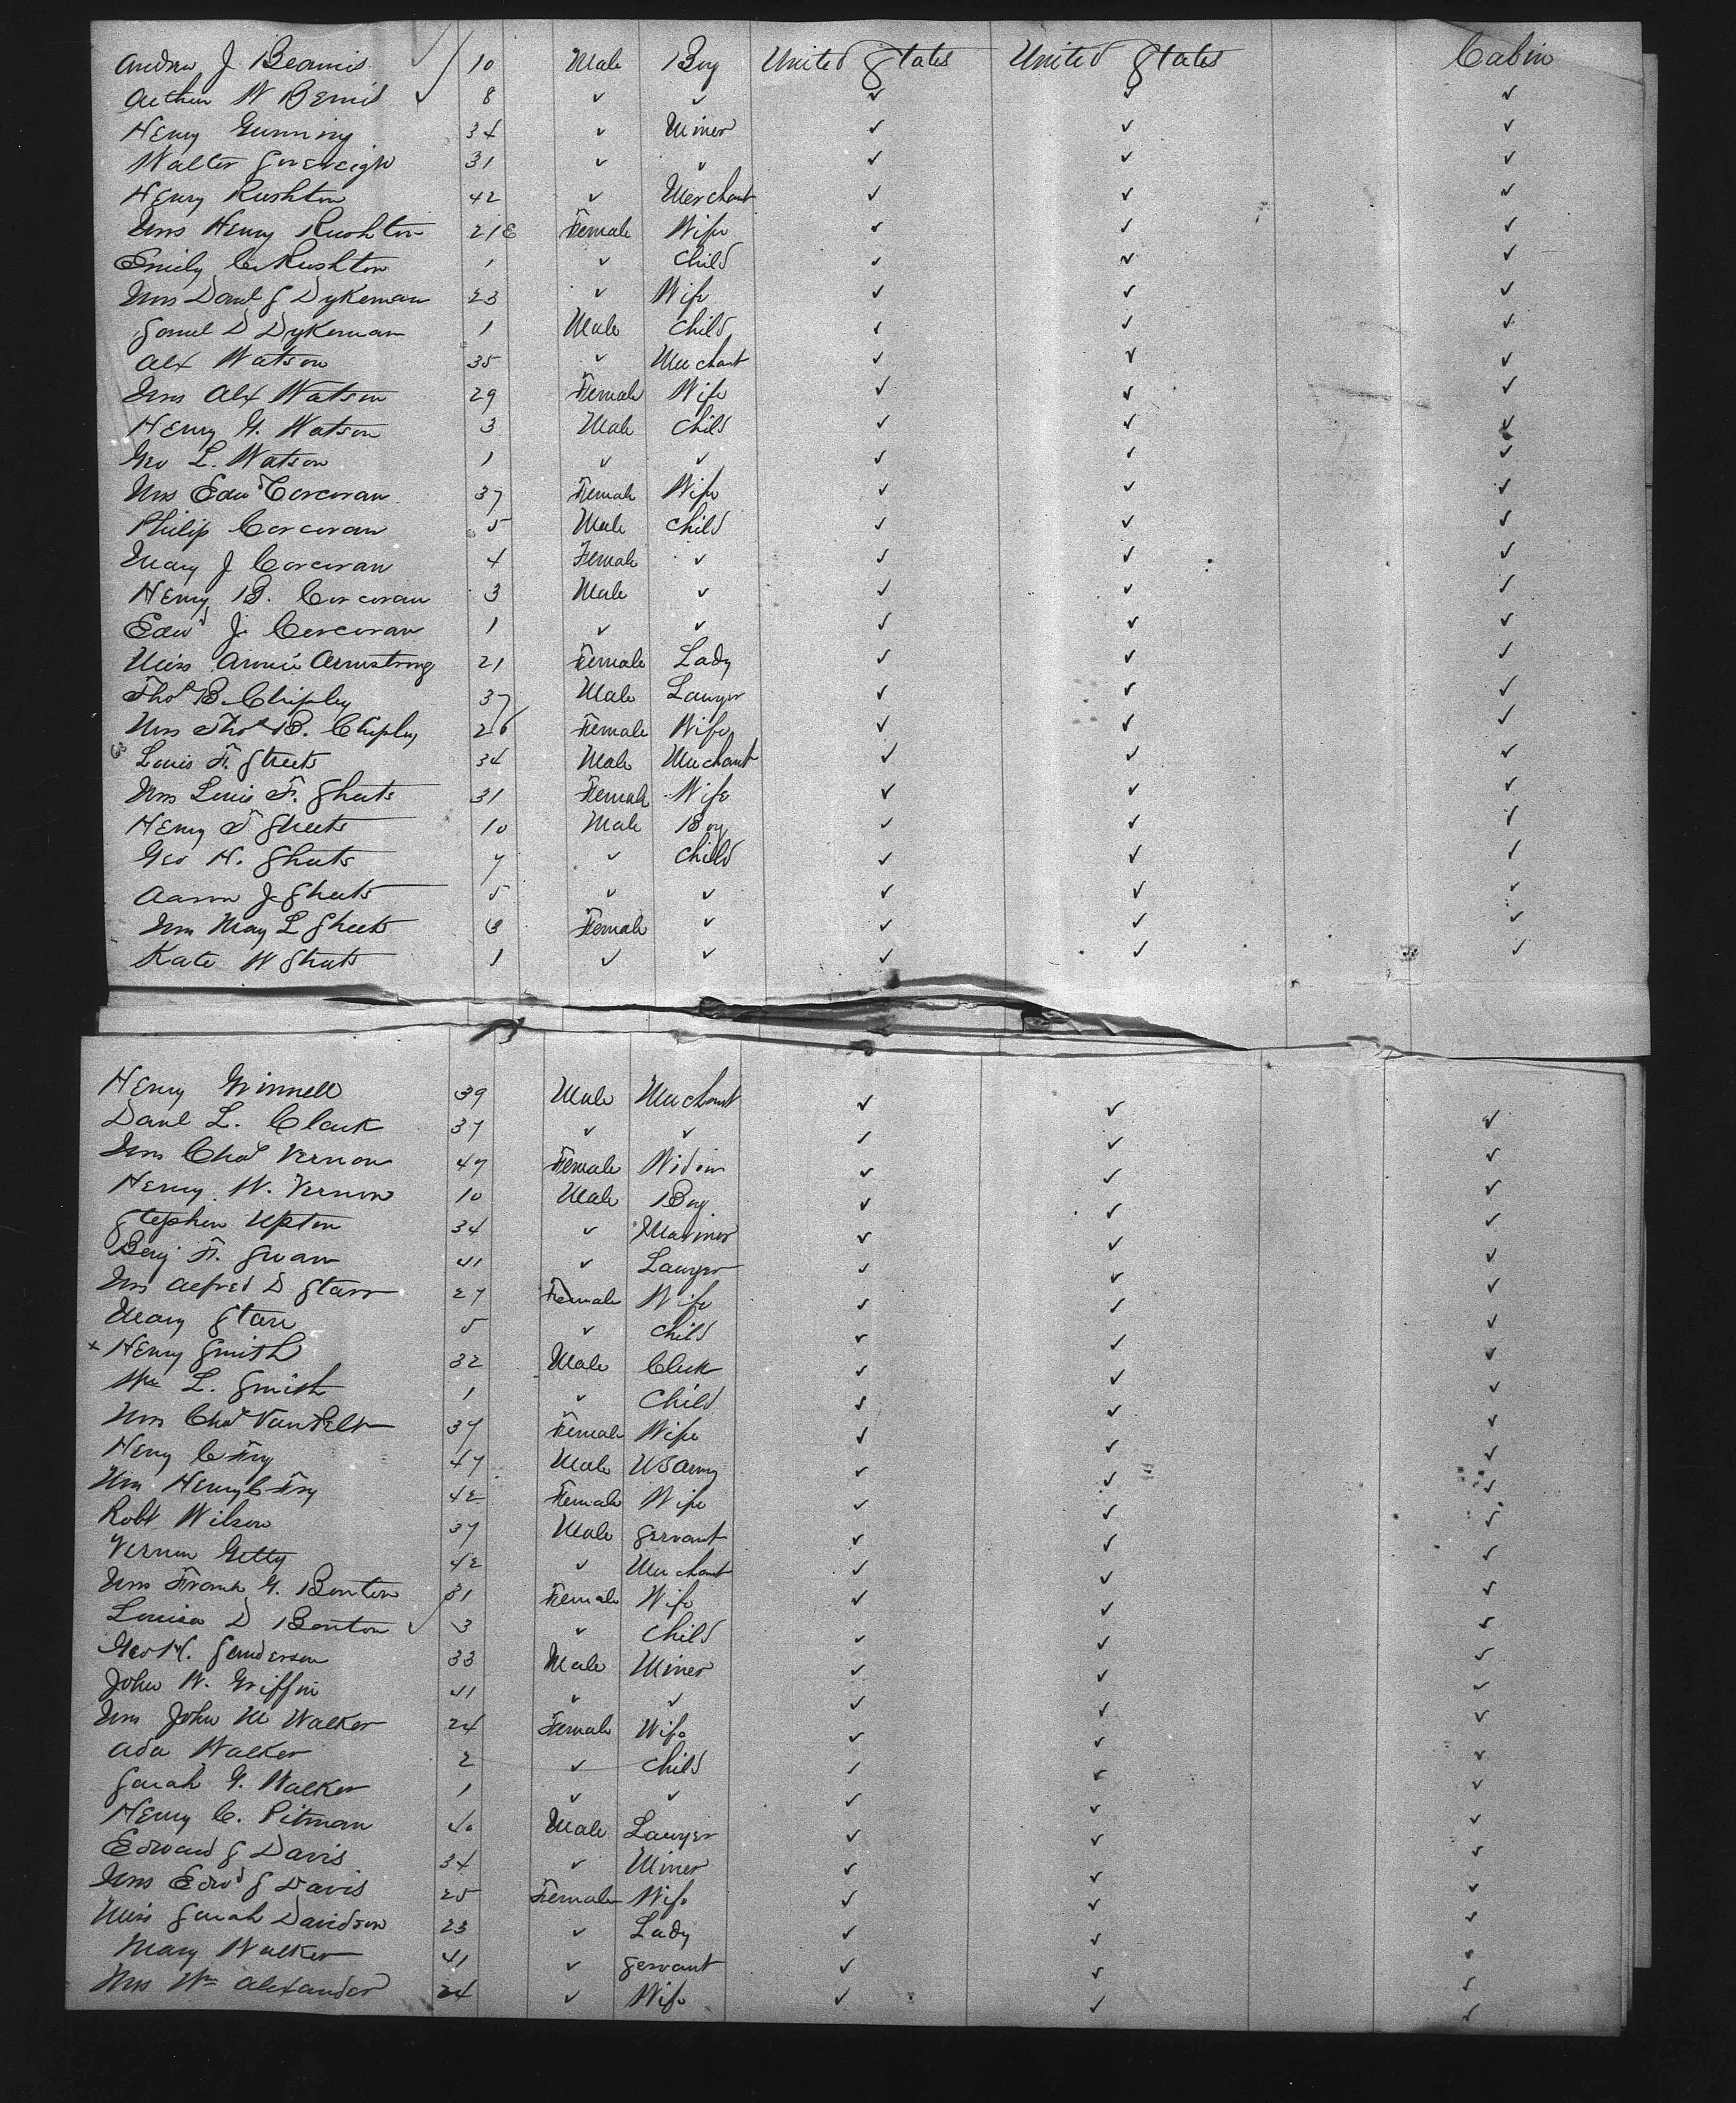 Andrew J Beamis ✓ 10 Male Boy United States United States Cabin
Arthur W Bemis ✓ 8 ✓ ✓ ✓ ✓ ✓
Henry Gunning 34 ✓ Miner ✓ ✓ ✓
Walter 31 ✓ ✓ ✓ ✓ ✓
Henry Rushton 42 ✓ Merchant ✓ ✓ ✓
Mrs Henry Rushton Female Wife ✓ ✓ ✓
Emily C Rushton 1 ✓ Child ✓ ✓ ✓
Mrs Danl S Dykeman 23 ✓ Wife ✓ ✓ ✓
D Dykeman 1 Male Child ✓ ✓ ✓
Alx Watson 35 ✓ Merchant ✓ ✓ ✓
Mrs Alx Watson 29 Female Wife ✓ ✓ ✓
Henry G. Watson 3 Male Child ✓ ✓ ✓
Geo L. Watson 1 ✓ ✓ ✓ ✓ ✓
Mrs Edwd Corcoran 37 Female Wife ✓ ✓ ✓
Philip Corcoran 5 Male Child ✓ ✓ ✓
Mary J Corcoran 4 Female ✓ ✓ ✓ ✓
Henry B. Corcoran 3 Male ✓ ✓ ✓ ✓
Edwd J. Corcoran 1 ✓ ✓ ✓ ✓ ✓
Miss Annie Armstrong 21 Female Lady ✓ ✓ ✓
Thos B. Chipley 37 Male Lawyer ✓ ✓ ✓
Mrs Thos B. Chipley 26 Female Wife ✓ ✓ ✓
Louis F. Sheets 34 Male Merchant ✓ ✓ ✓
Mrs Louis F. Sheets 31 Female Wife ✓ ✓ ✓
Henry T Sheets 10 Male Boy ✓ ✓ ✓
Geo H. Sheets 7 ✓ Child ✓ ✓ ✓
Aaron J. Sheets 5 ✓ ✓ ✓ ✓ ✓
May L Sheets 3 Female ✓ ✓ ✓ ✓
Kate W Sheets 1 ✓ ✓ ✓ ✓ ✓
Henry Grinnell 39 Male Merchant ✓ ✓ ✓
Danl L. Clark 37 ✓ ✓ ✓ ✓ ✓
Mrs Chas Vernon 47 Female Widow ✓ ✓ ✓
Henry W. Vernon 10 Male Boy ✓ ✓ ✓
Stephen Upton 34 ✓ Mariner ✓ ✓ ✓
Benj F. Swan 41 ✓ Lawyer ✓ ✓ ✓
Mrs Alfred D Starr 27 Female Wife ✓ ✓ ✓
Mary Starr 5 ✓ Child ✓ ✓ ✓
x Henry Smith 32 Male Clerk ✓ ✓ ✓
Wm L. Smith 1 ✓ Child ✓ ✓ ✓
Mrs Chas VanPelt 37 Female Wife ✓ ✓ ✓
Henry C Fry 47 Male US Army ✓ ✓ ✓
Mrs Henry C Fry 42 Female Wife ✓ ✓ ✓
Robt Wilson 37 Male Servant ✓ ✓ ✓
Vernon Getty 42 ✓ Merchant ✓ ✓ ✓
Mrs Frank G. Benton 31 Female Wife ✓ ✓ ✓
Louisa D Benton ✓ 3 ✓ Child ✓ ✓ ✓
Geo H. Sanderson 33 Male Miner ✓ ✓ ✓
John W. Griffin 41 ✓ ✓ ✓ ✓ ✓
Mrs John M Walker 24 Female Wife ✓ ✓ ✓
Ada Walker 2 ✓ Child ✓ ✓ ✓
Sarah G. Walker 1 ✓ ✓ ✓ ✓ ✓
Henry C. Pitman 40 Male Lawyer ✓ ✓ ✓
Edward S Davis 34 ✓ Miner ✓ ✓ ✓
Mrs Edwd S Davis 25 Female Wife ✓ ✓ ✓
Miss Sarah Davidson 23 ✓ Lady ✓ ✓ ✓
Mary Walker 41 ✓ Servant ✓ ✓ ✓
Mrs Wm Alexander 24 ✓ Wife ✓ ✓ ✓